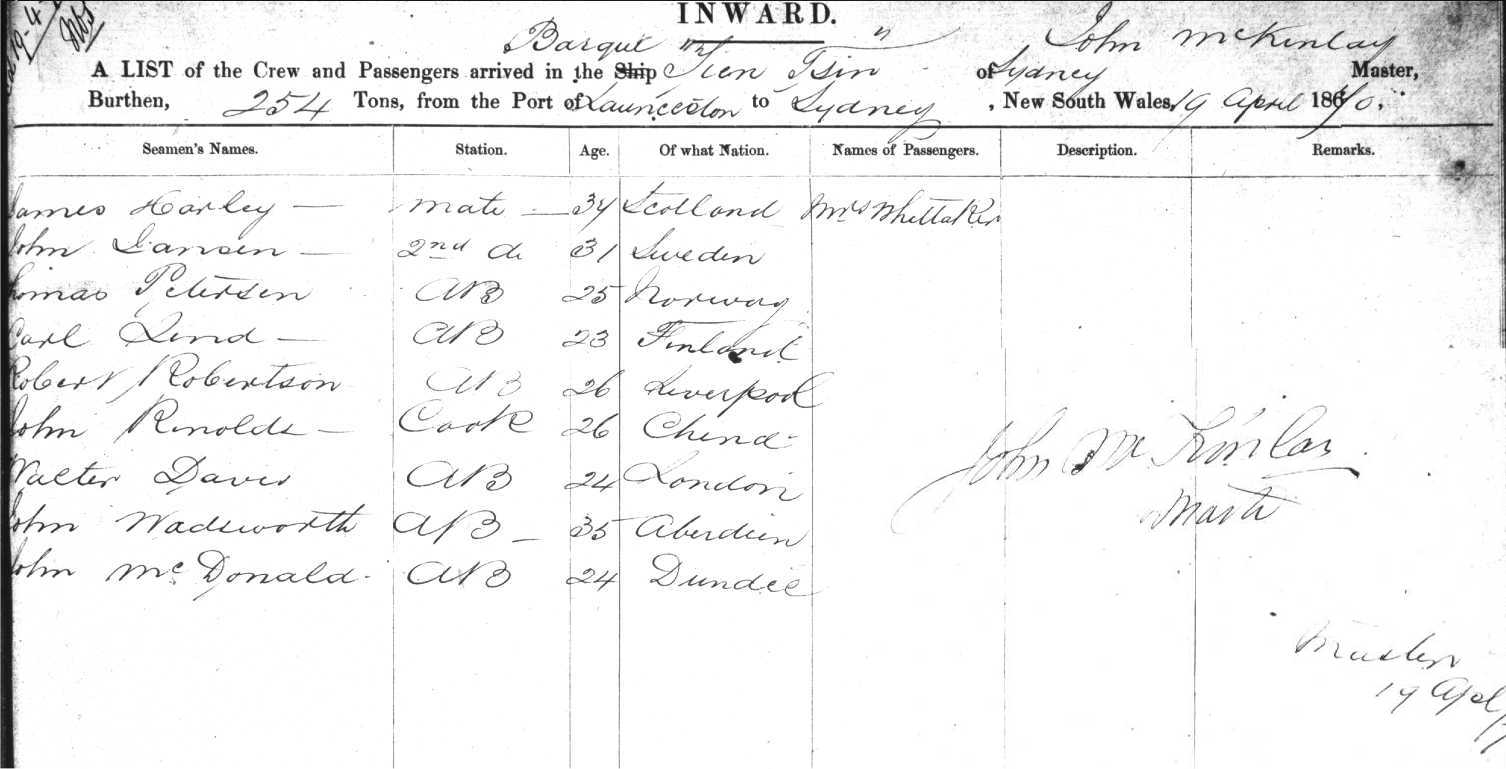 19-4
INWARD.
Barque "Tien Tsin" John McKinlay
A LIST of the Crew and Passengers arrived in the Ship of Sydney Master,
Burthen, 254 Tons, from the Port of Launceston to Sydney, New South Wales, 19 April 1870.
Seamen's Names. Station. Age. Of what Nation. Names of Passengers. Description. Remarks.
James Harley — Mate — 34 Scotland Mrs Whittaker
John Jansen — 2nd do 31 Sweden
Thomas Petersen AB 25 Norway
Carl Lind — AB 23 Finland
Robert Robertson AB 26 Liverpool
John Rinolds — Cook 26 China
Walter Davis AB 24 London
John Wadsworth AB - 35 Aberdeen
John McDonald AB 24 Dundee
John McKinlay
Master
19 April